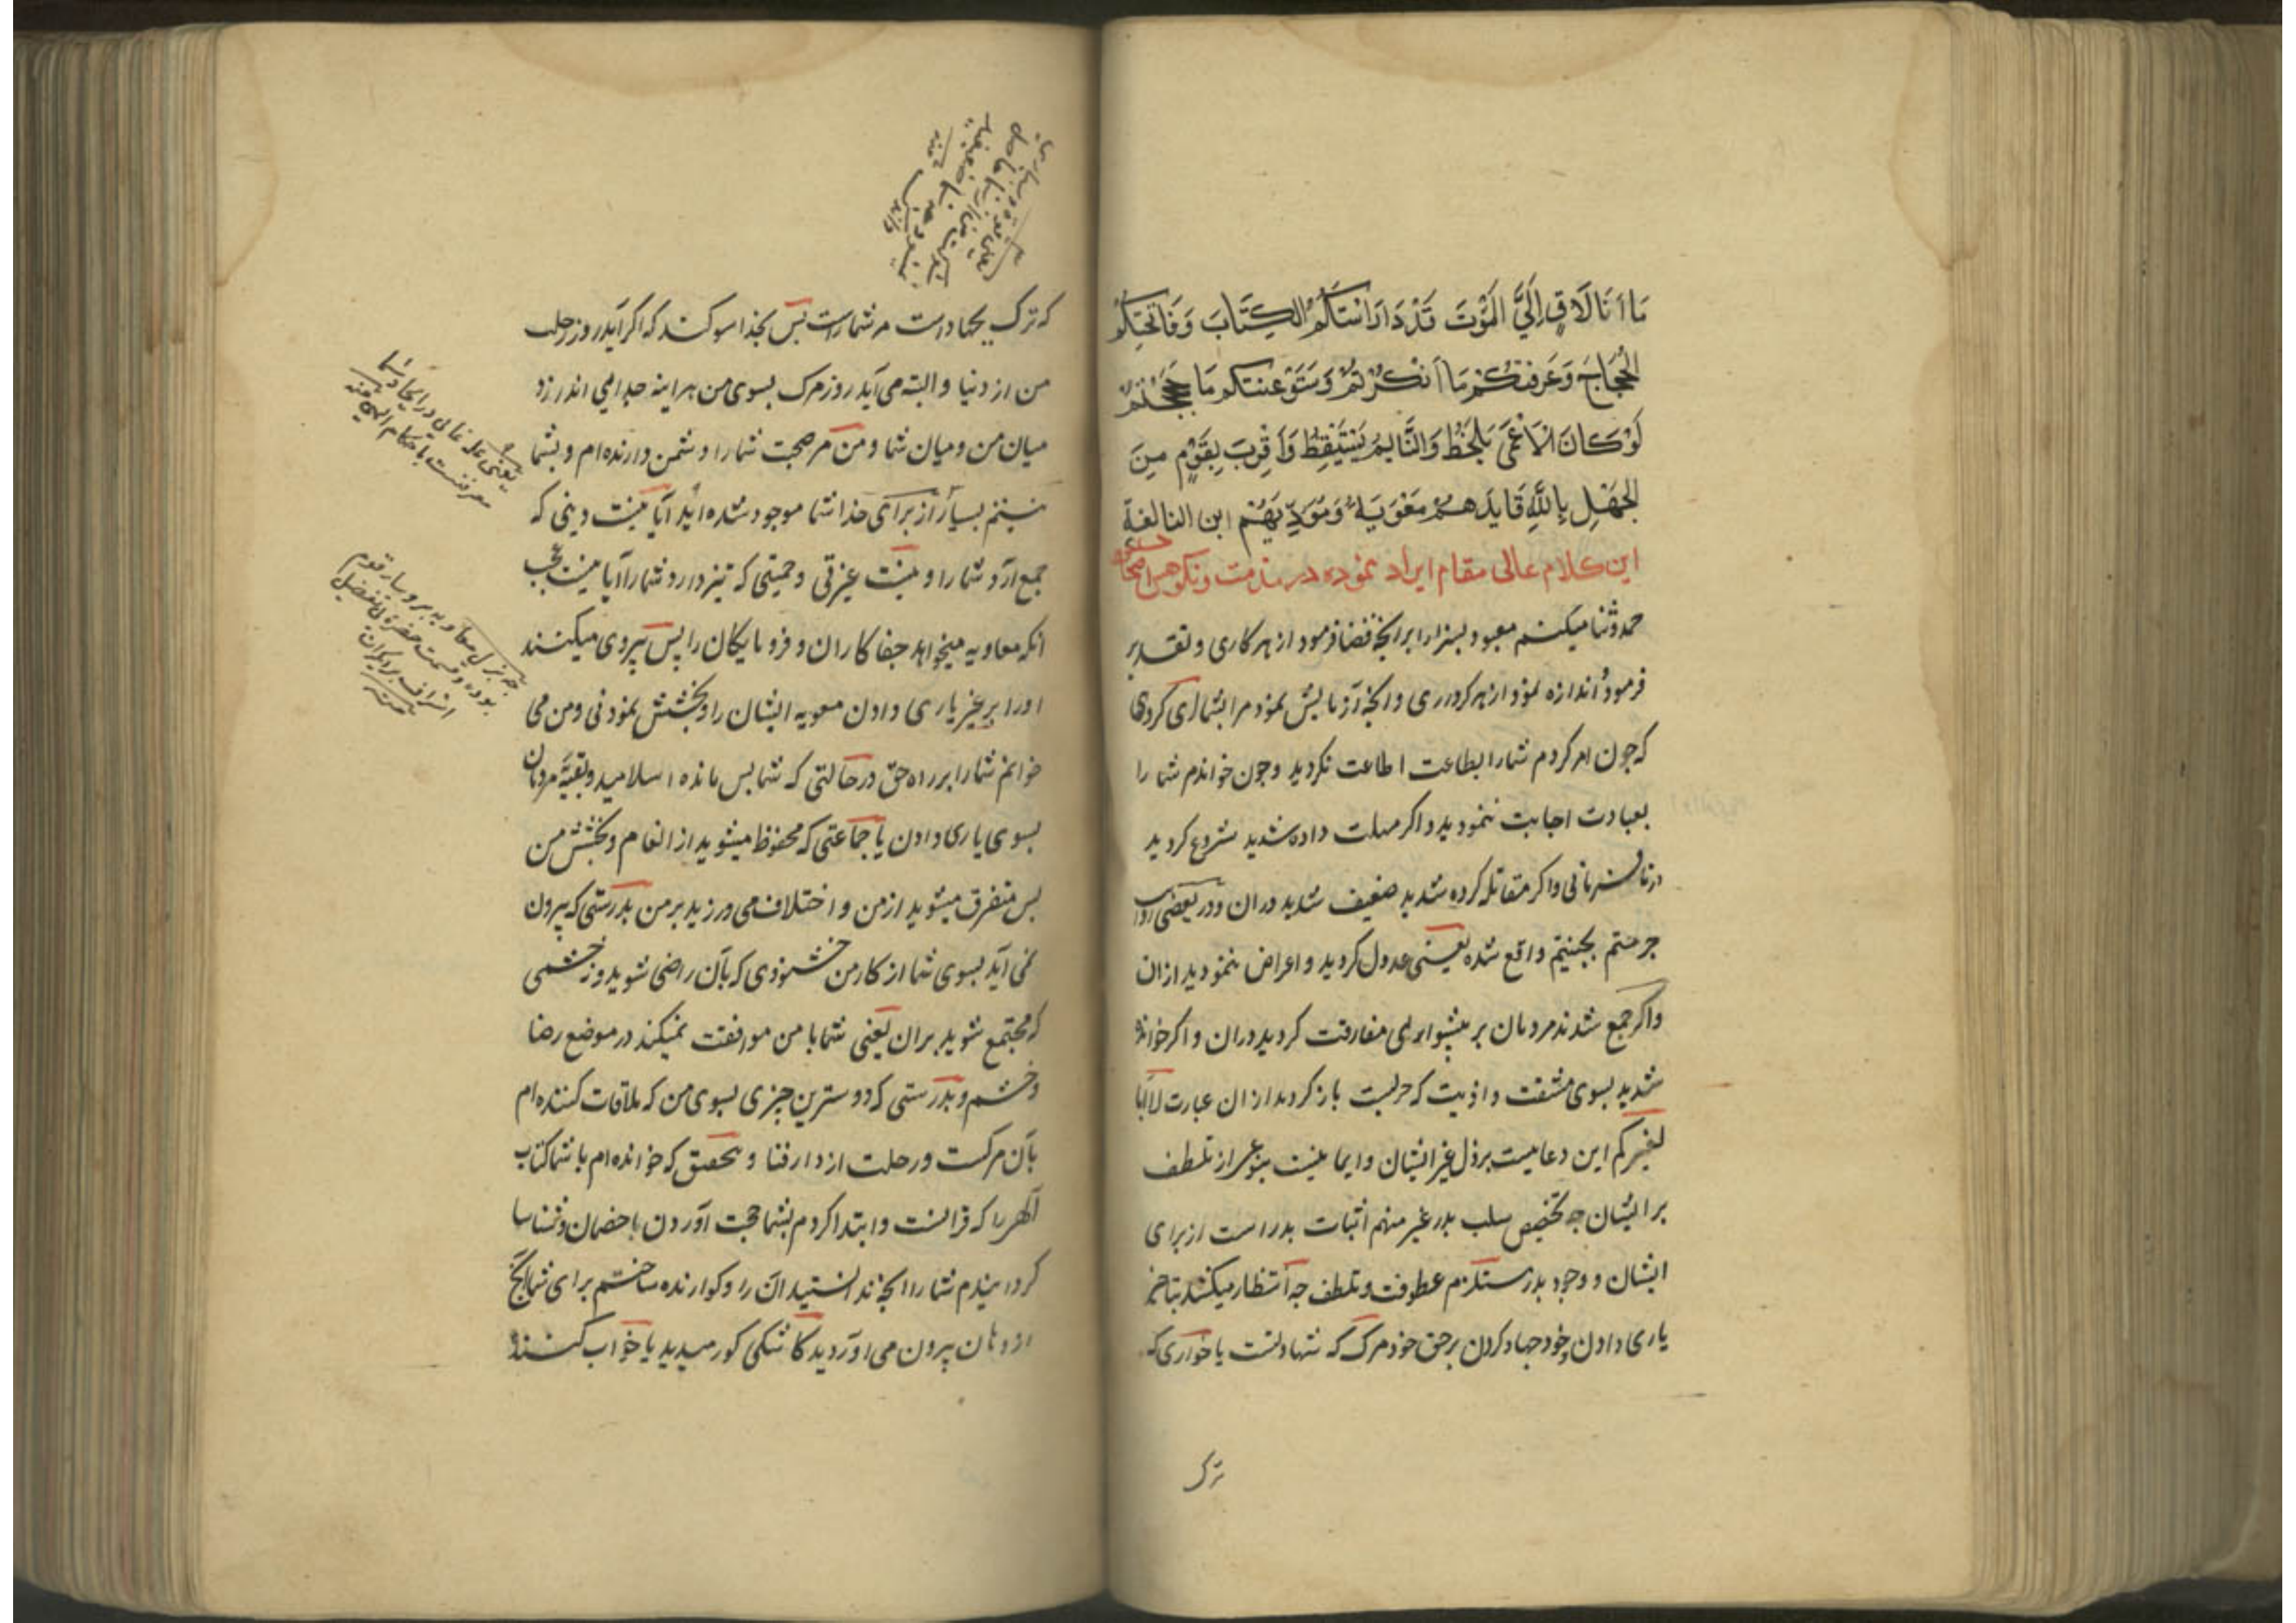 مَا اَنَا لَاقٍ اِلَيَّ الْمَوْتَ قَدْ دَارَسْتُكُمُ الكِتَابَ وَفَاتَحْتُكُمُ
الْحُجَّاجَ وَعَرَّفْتُكُمْ مَا اَنْكَرْتُمْ وَسَوَّغْتُكُم مَا مَجَجْتُمْ
لَوْ كَانَ الْاَعْمَى يَلْحَظُ وَالنَّايِمُ يَسْتَيْقِظُ وَاَقْرِبْ بِقَوْمٍ مِنَ
الْجَهْلِ بِاللهِ قَايِدُهُمْ مُعَوِيَةُ وَمُؤَدِّبُهُمْ ابن النابغة
این کلام عالی مقام ایراد نموده در مذمت و نکوهش اصحاب
حمد و ثنا میکنم معبود بسزا را بر انچه قضا فرمود از هر کاری و تقدیر
فرمود و اندازه نمود از هر کرداری و انچه آزمایش نمود مرا بشما ای کروهی
که جون امر کردم شما را بطاعت اطاعت نکردید و جون خواندم شما را
بعبادت اجابت ننمودید و اکر مهلت داده شدید شروع کردید
در نافرمانی و اکر مقاتله کرده شدید ضعیف شدید دران و در بعضی روایت
جرمتم بجیتم واقع شده یعنی عدول کردید و اعراض ننمودید ازان
و اکر جمع شدند مردمان بر پیشوایی مفارقت کردید دران و اکر خوانده
شدید بسوی مشقت و اذیت که حربست باز کردید ازان عبارت لا ابا
لغیرکم این دعاییست بر ذل غیر ایشان و ایما نیست بنوعی از تلطف
بر ایشان چه تخصیص سلب پدر غیر منهم اثبات پدر است از برای
ایشان و وجود پدر مستلزم عطوفت و تلطف چه انتظار میکشد بتاخیر
یاری دادن خود جهاد کردن بر حق خود مرک که شهادتست یا خواری که
ترک
که ترک جهاد است مر شما راست پس بخدا سوکند که اکر آید روز رحلت
من از دنیا و البته می آید روز مرک بسوی من هر اینه جدایی اندازد
میان من و میان شما و من مر صحبت شما را دشمن دارنده ام و بشما
نیستم بسیار از برای خدا شما موجود شده اید آیا نیست دینی که
جمع آرد شما را و نیست غیرتی و حمیتی که تیز دارد شما را آیا نیست عجب
انکه معاویه میخواند جفاکاران و فرومایکان را پس پیروی میکنند
او را بر غیر یاری دادن معویه ایشان را و بخشش نمودنی و من می
خوانم شما را بر راه حق در حالتی که شما پس مانده اسلامید و بقیه مردمان
بسوی یاری دادن یا جماعتی که محفوظ میشوید از انعام و بخشش من
پس متفرق میشوید از من و اختلاف می ورزید بر من بدرستی که بیرون
نمی آید بسوی شما از کار من خشنودی که بآن راضی شوید و نه خشمی
که مجتمع شوید بران یعنی شما با من موافقت نمیکند در موضع رضا
و خشم و بدرستی که دوسترین چیزی بسوی من که ملاقات کننده ام
بآن مرکست و رحلت از دار فنا و بتحقیق که خوانده ام با شما کتاب
الهی را که قرانست و ابتدا کردم بشما حجت آوردن با خصمان و شناسا
کردانیدم شما را انچه ندانستید ان را و کوارنده ساختم برای شما انچه
از دهان بیرون می اوردید کاشکی کور میدید یا خواب کننده
یعنی
در ایجاد شما
معرفتست باحکام الهی منه